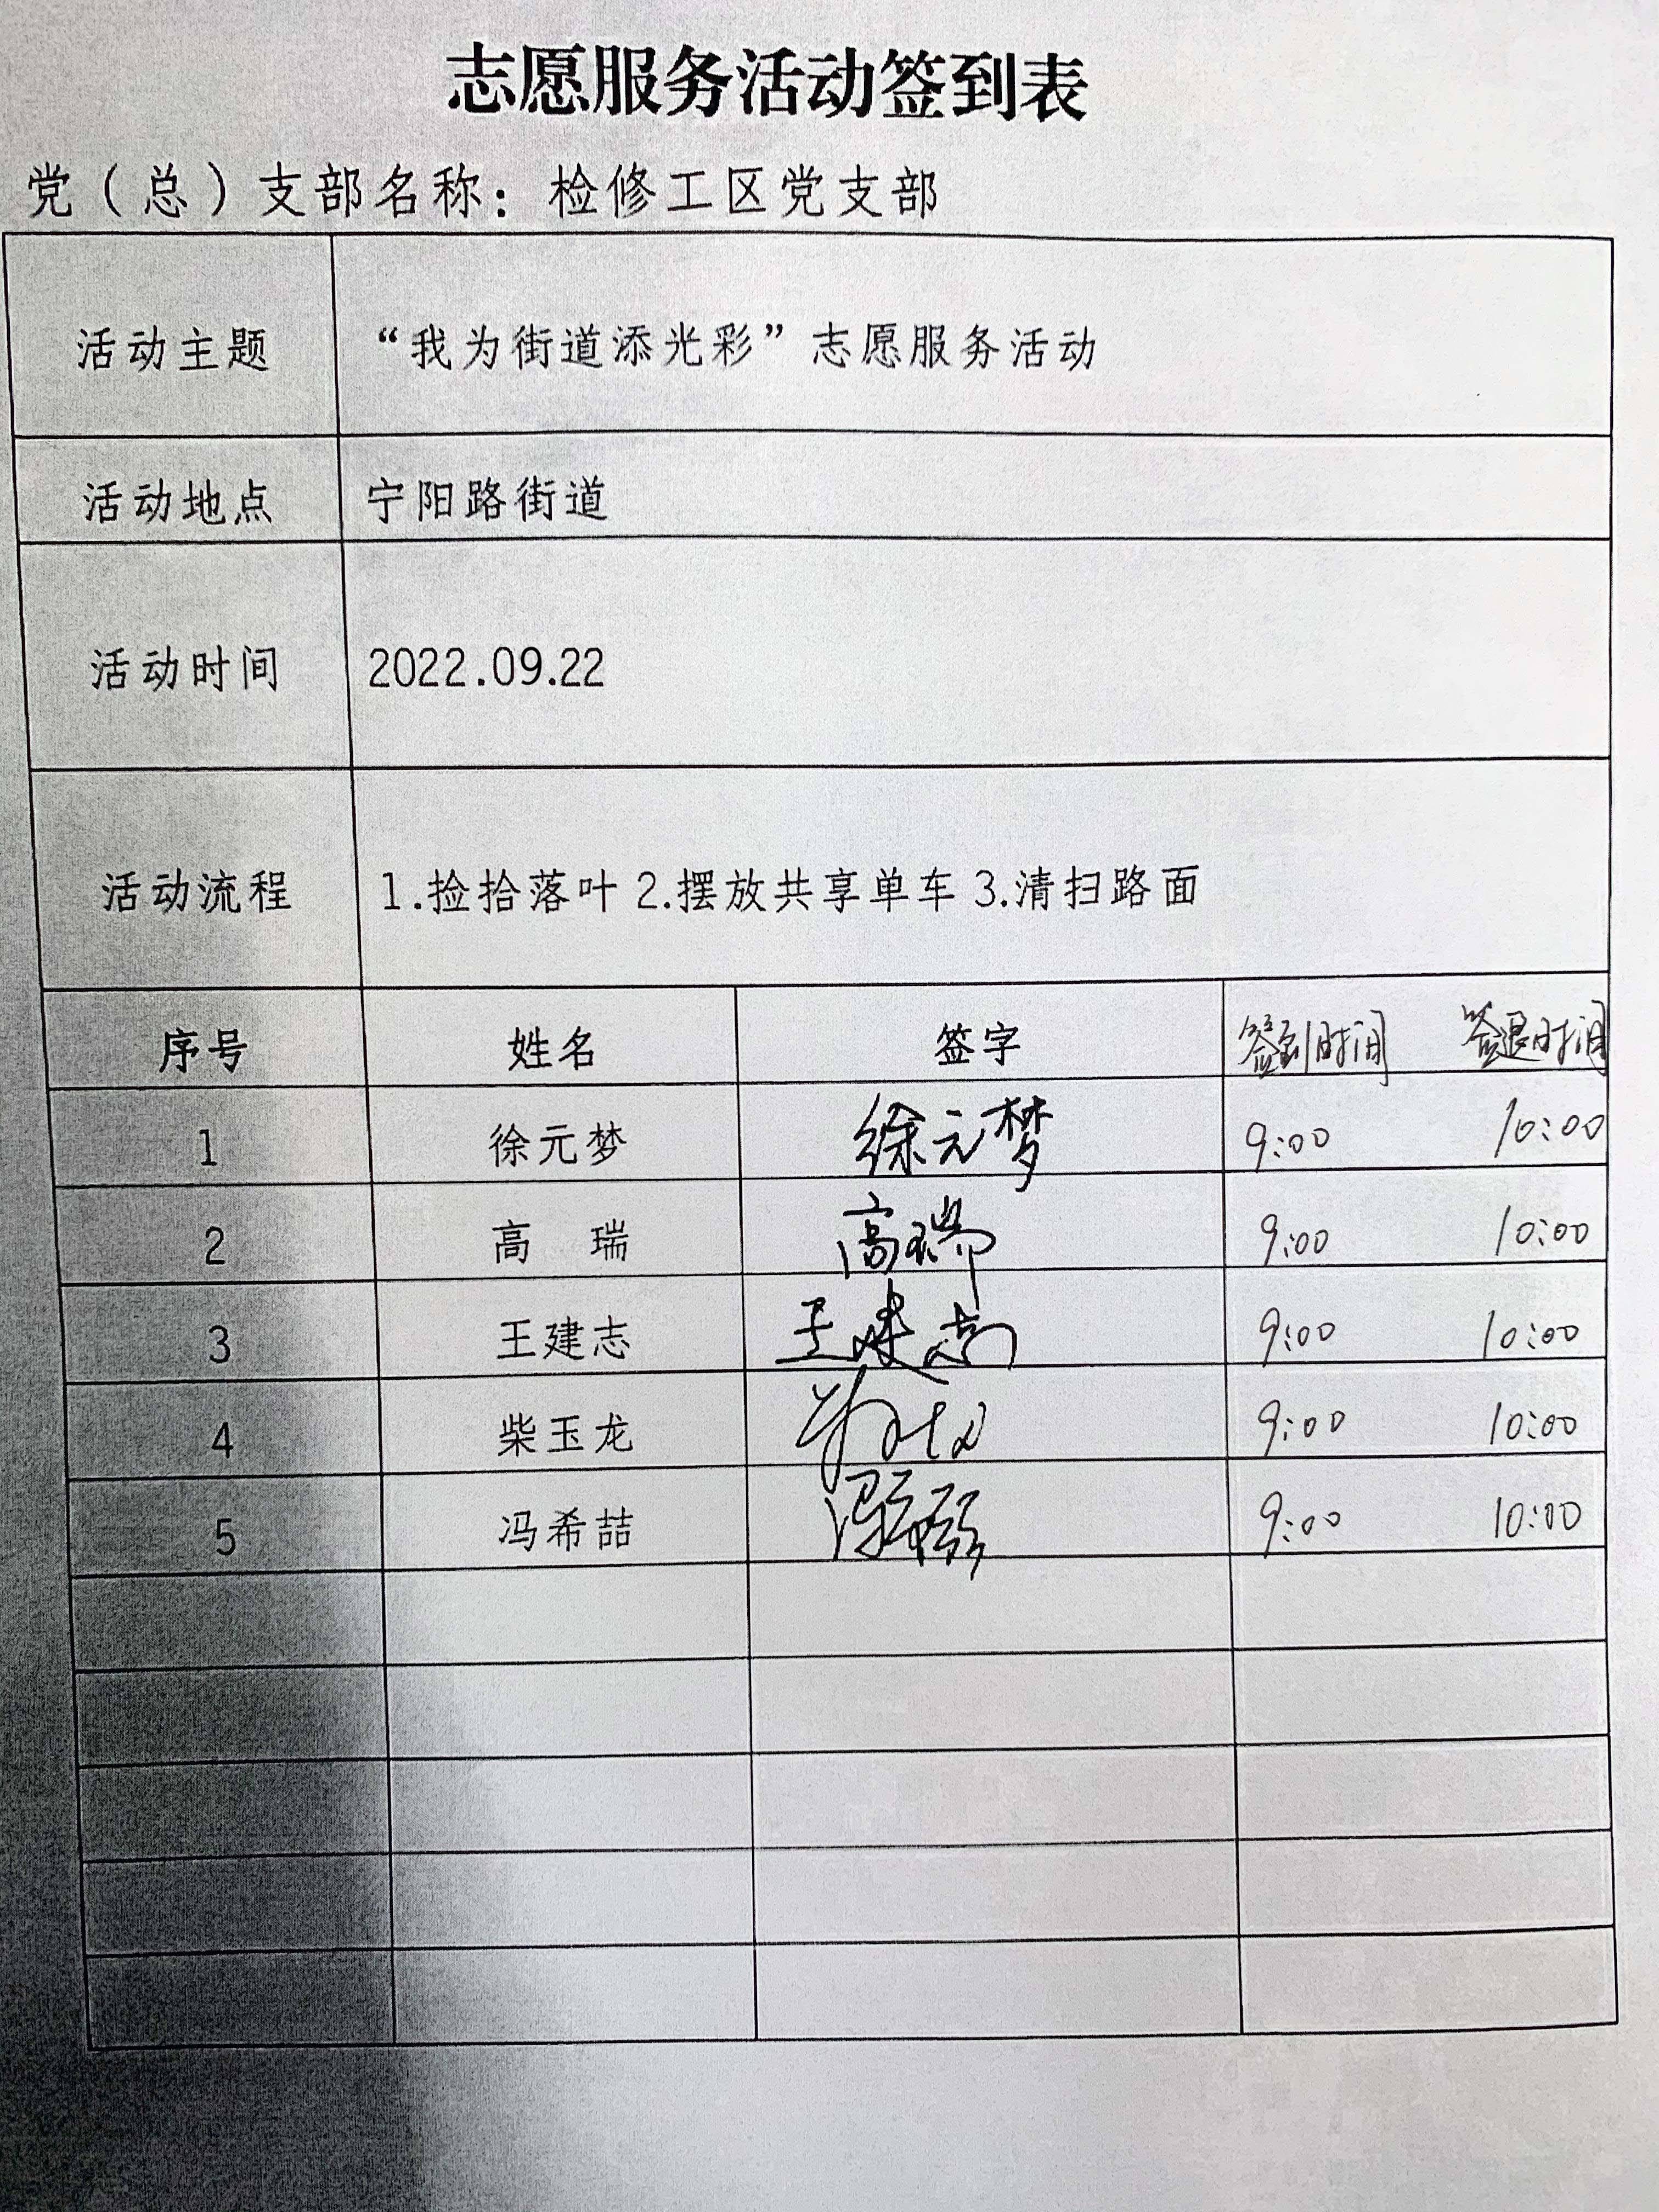 志愿服务活动签到表
党（总）支部名称：检修工区党支部
活动主题 “我为街道添光彩”志愿服务活动
活动地点 宁阳路街道
活动时间 2022.09.22
活动流程 1.捡拾落叶 2.摆放共享单车 3.清扫路面
序号 姓名 签字 签到时间 签退时间
1 徐元梦 徐元梦 9:00 10:00
2 高 瑞 高瑞 9:00 10:00
3 王建志 王建志 9:00 10:00
4 柴玉龙 9:00 10:00
5 冯希喆 9:00 10:00